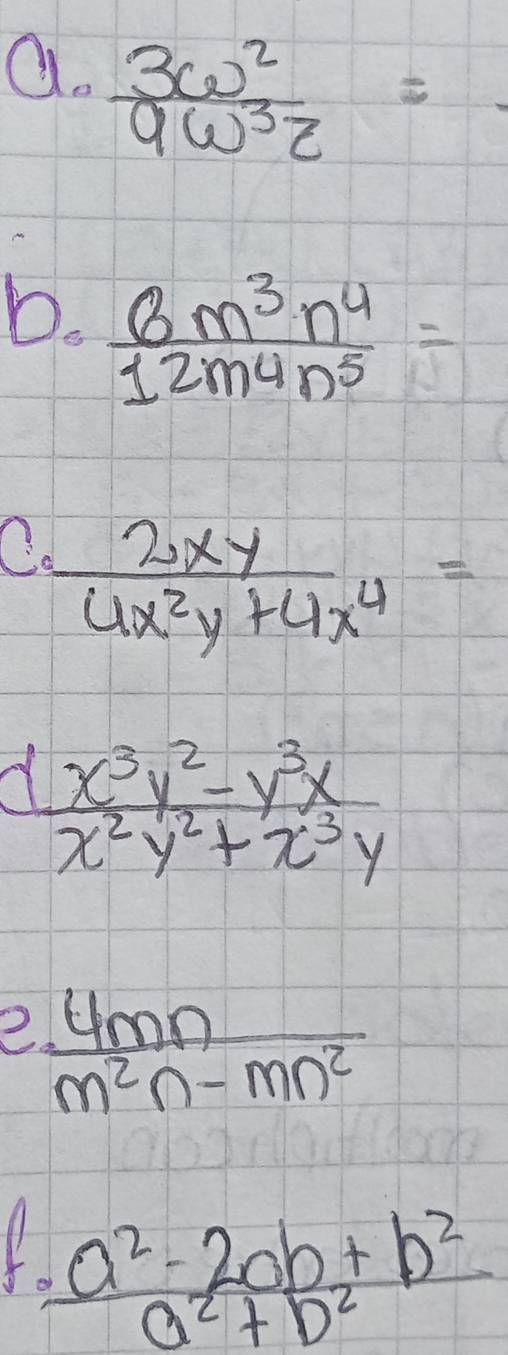 a. 3ω²
9ω³z =
b. 6m³n⁴
12m4n⁵ =
c. 2xy
4x²y+4x⁴ =
d x³y²-y³x
x²y²+x³y
e. 4mn
m²n-mn²
f. a²-2ab+b²
a²+b²